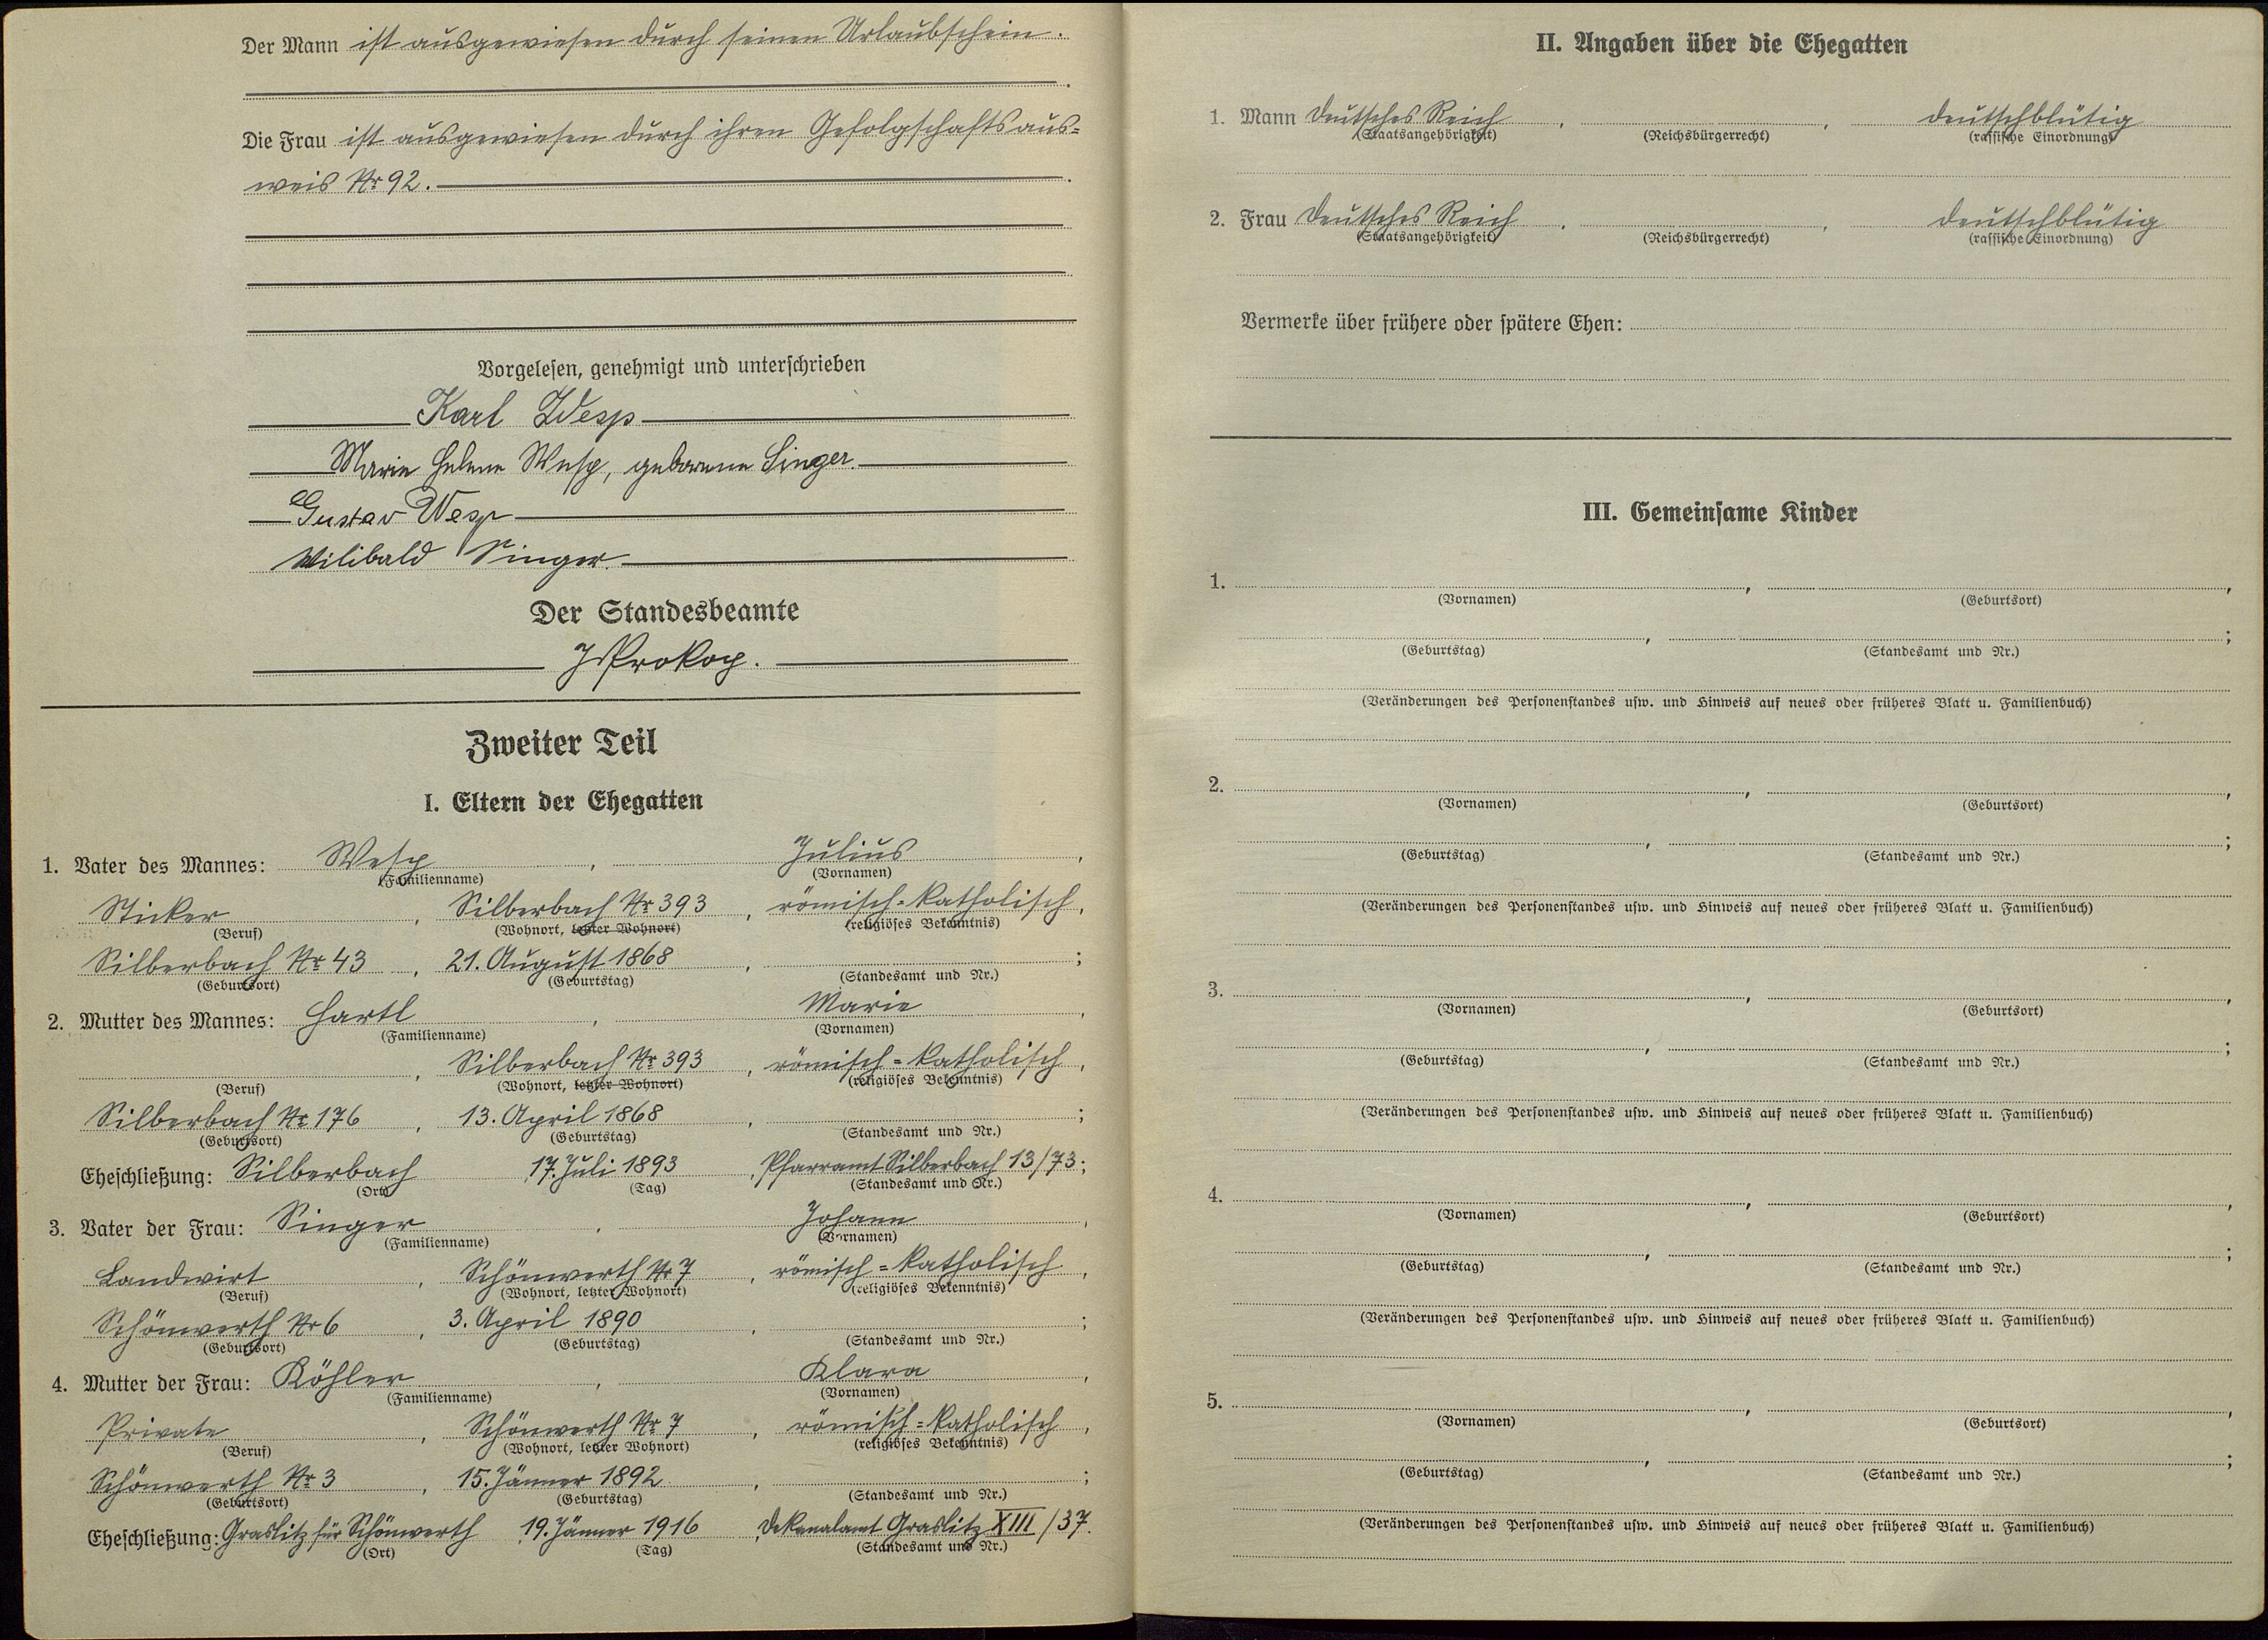 Der Mann ist ausgewiesen durch seinen Urlaubschein.
Die Frau ist ausgewiesen durch ihren Gefolgschaftsaus=
weis Nr 92.
Vorgelesen, genehmigt und unterschrieben
Karl Wesp
Marie Helene Wesp, geborene Singer.
Gustav Wesp
Wilibald Singer.
Der Standesbeamte
J Prokop.
Zweiter Teil
I. Eltern der Ehegatten
1. Vater des Mannes: Wesp, Julius,
(Familienname) (Vornamen)
Sticker, Silberbach Nr 393, römisch=katholisch,
(Beruf) (Wohnort, letzter Wohnort) (religiöses Bekenntnis)
Silberbach Nr 43, 21. August 1868, ;
(Geburtsort) (Geburtstag) (Standesamt und Nr.)
2. Mutter des Mannes: Hartl, Marie,
(Familienname) (Vornamen)
, Silberbach Nr 393, römisch=katholisch,
(Beruf) (Wohnort, letzter Wohnort) (religiöses Bekenntnis)
Silberbach Nr 176, 13. April 1868, ;
(Geburtsort) (Geburtstag) (Standesamt und Nr.)
Eheschließung: Silberbach, 17. Juli 1893, Pfarramt Silberbach 13/73;
(Ort) (Tag) (Standesamt und Nr.)
3. Vater der Frau: Singer, Johann,
(Familienname) (Vornamen)
Landwirt, Schönwerth Nr 7, römisch=katholisch,
(Beruf) (Wohnort, letzter Wohnort) (religiöses Bekenntnis)
Schönwerth Nr 6, 3. April 1890, ;
(Geburtsort) (Geburtstag) (Standesamt und Nr.)
4. Mutter der Frau: Köhler, Klara,
(Familienname) (Vornamen)
Private, Schönwerth Nr 7, römisch=katholisch,
(Beruf) (Wohnort, letzter Wohnort) (religiöses Bekenntnis)
Schönwerth Nr 3, 15. Jänner 1892, ;
(Geburtsort) (Geburtstag) (Standesamt und Nr.)
Eheschließung: Graslitz für Schönwerth, 19. Jänner 1916, Dekanalamt Graslitz XIII/37.
(Ort) (Tag) (Standesamt und Nr.)
II. Angaben über die Ehegatten
1. Mann Deutsches Reich, , deutschblütig
(Staatsangehörigkeit) (Reichsbürgerrecht) (rassische Einordnung)
2. Frau Deutsches Reich, , deutschblütig
(Staatsangehörigkeit) (Reichsbürgerrecht) (rassische Einordnung)
Vermerke über frühere oder spätere Ehen:
III. Gemeinsame Kinder
1. , ,
(Vornamen) (Geburtsort)
, ;
(Geburtstag) (Standesamt und Nr.)
(Veränderungen des Personenstandes usw. und Hinweis auf neues oder früheres Blatt u. Familienbuch)
2. , ,
(Vornamen) (Geburtsort)
, ;
(Geburtstag) (Standesamt und Nr.)
(Veränderungen des Personenstandes usw. und Hinweis auf neues oder früheres Blatt u. Familienbuch)
3. , ,
(Vornamen) (Geburtsort)
, ;
(Geburtstag) (Standesamt und Nr.)
(Veränderungen des Personenstandes usw. und Hinweis auf neues oder früheres Blatt u. Familienbuch)
4. , ,
(Vornamen) (Geburtsort)
, ;
(Geburtstag) (Standesamt und Nr.)
(Veränderungen des Personenstandes usw. und Hinweis auf neues oder früheres Blatt u. Familienbuch)
5. , ,
(Vornamen) (Geburtsort)
, ;
(Geburtstag) (Standesamt und Nr.)
(Veränderungen des Personenstandes usw. und Hinweis auf neues oder früheres Blatt u. Familienbuch)